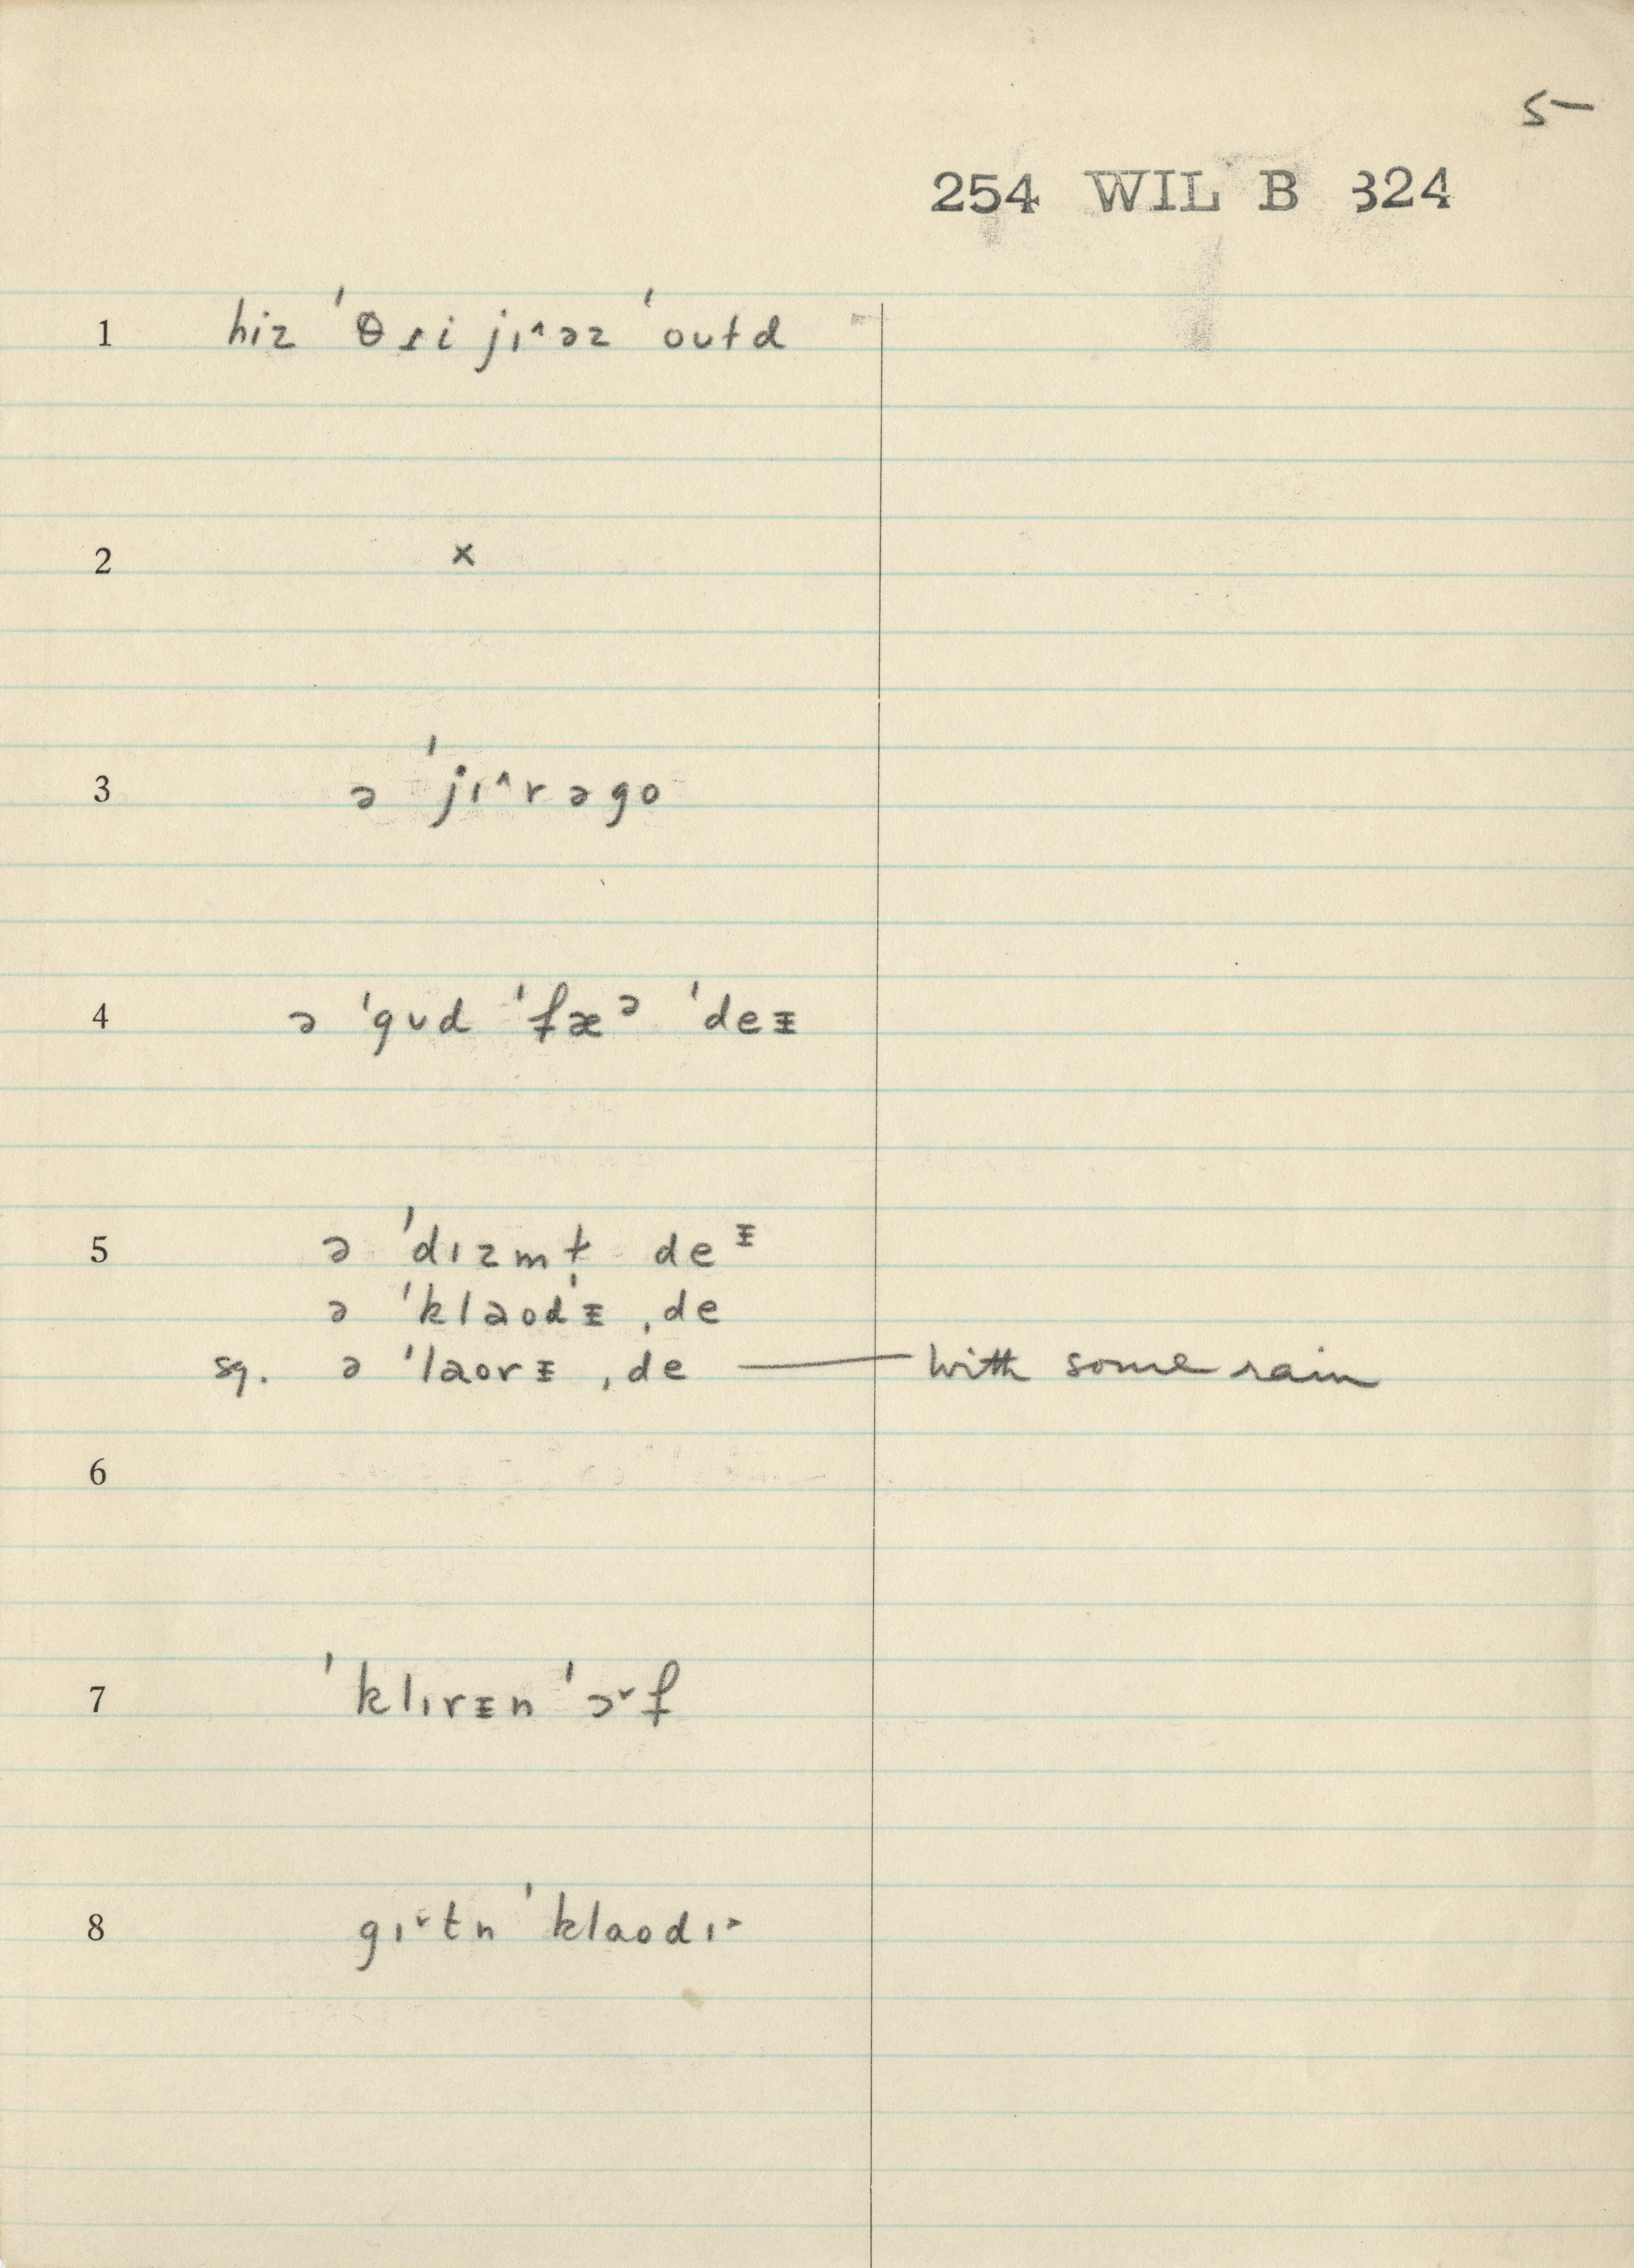 5
254 WIL B 324
1 hiz ˈθɹi jɪ^əz ˈoʊɫd
2 ×
3 ə ˈjɪ^rəgo
4 ə ˈgʊd ˈfæᵊ ˈdeᵻ
5 ə ˈdɪzmɫ̣ deᵻ
ə ˈklaodᵻ ˌde
sq. ə ˈlaorᵻ ˌde — with some rain
6
7 ˈklɪrᵻn ˈɔ˅f
8 gɪ˅tn ˈklaodɪ˃